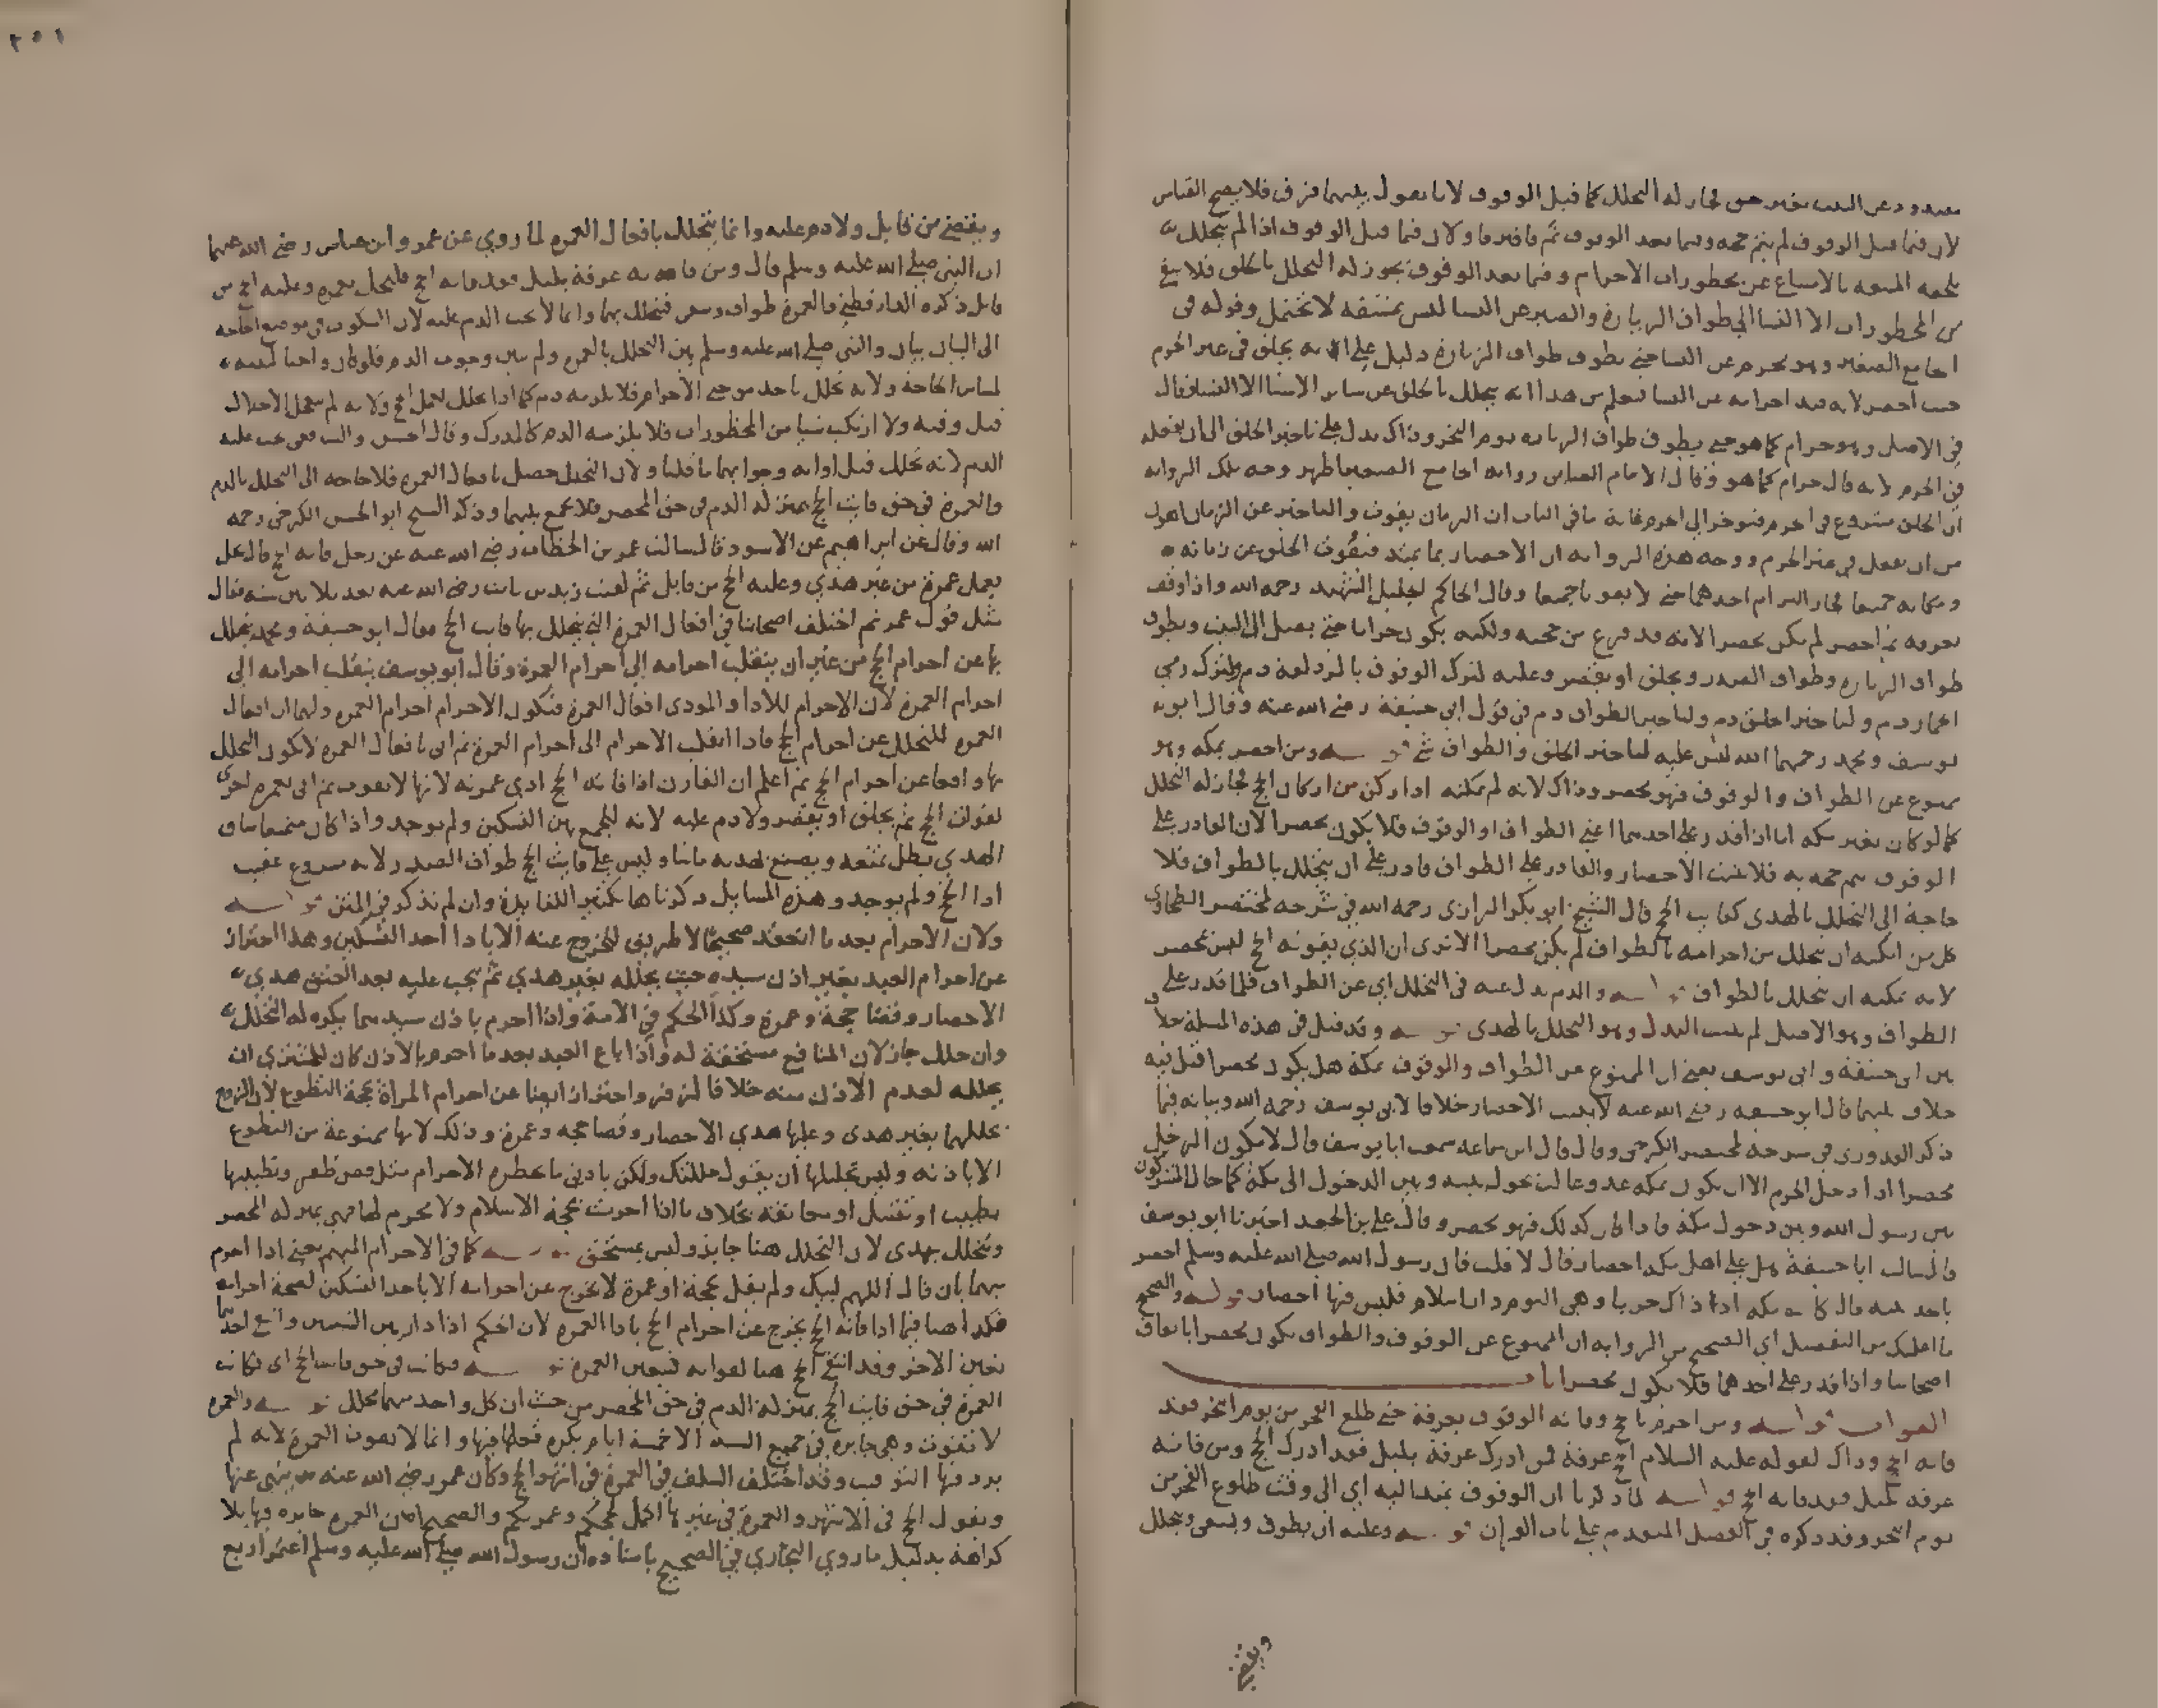 مصدود عن البيت بغير حق فجاز له التحلل كما قبل الوقوف لانا نقول بينهما فرق فلا يصح القياس
لان فيما قبل الوقوف لم يتم حجه وفيما بعد الوقوف تم فافترقا ولان فيما قبل الوقوف اذا لم يتحلل
يلحقه المشقة بالامتناع عن محظورات الاحرام وفيما بعد الوقوف يجوز له التحلل بالحلق فلا يبقى
من المحظورات الا النسا الى طواف الزيارة والصبر عن النسا ليس بمشقة لا تحتمل وقوله في
الجامع الصغير وهو محرم عن النسا حتى يطوف طواف الزيارة دليل على انه يحلق في غير الحرم
حيث احصر لانه قيد احرامه عن النسا فعلم من هذا انه يتحلل بالحلق عن ساير الاشيا الا النسا وقال
في الاصل وهو حرام كما هو حتى يطوف طواف الزيارة يوم النحر وذاك يدل على تاخير الحلق الى ان يفعله
في الحرم لانه قال حرام كما هو وقال الامام العتابي رواية الجامع الصغير اظهر وجه تلك الرواية
ان الحلق مشروع في الحرم فيوخر الى الحرم غاية ما في الباب ان الزمان يفوت والتاخير عن الزمان اهون
من ان يفعل في غير الحرم ووجه هذه الرواية ان الاحصار ربما يمتد فيفوت الحلق عن زمانه
ومكانه جميعا فجاز التزام احدهما حتى لا يفوتا جميعا وقال الحاكم الجليل الشهيد رحمه الله واذا وقف
بعرفة ثم احصر لم يكن محصرا لانه قد فرغ من حجه ولكنه يكون حراما حتى يصل الى البيت ويطوف
طواف الزيارة وطواف الصدر ويحلق او يقصر وعليه لترك الوقوف بالمزدلفة دم ولترك رمي
الجمار دم ولتاخير الحلق دم ولتاخير الطواف دم في قول ابي حنيفة رضي الله عنه وقال ابو
يوسف ومحمد رحمهما الله ليس عليه لتاخير الحلق والطواف شي قوله ومن احصر بمكة وهو
ممنوع عن الطواف والوقوف فهو محصر وذاك لانه لم يمكنه ادا ركن من اركان الحج فجاز له التحلل
كما لو كان بغير مكة اما اذا قدر على احدهما اعني الطواف او الوقوف فلا يكون محصرا لان القادر على
الوقوف يتم حجه به فلا يثبت الاحصار والقادر على الطواف قادر على ان يتحلل بالطواف فلا
حاجة الى التحلل بالهدي كفايت الحج قال الشيخ ابو بكر الرازي رحمه الله في شرحه لمختصر الطحاوي
كل من امكنه ان يتحلل من احرامه بالطواف لم يكن محصرا الا ترى ان الذي يفوته الحج ليس بمحصر
لانه يمكنه ان يتحلل بالطواف قوله والدم بدل عنه في التحلل اي عن الطواف فلما قدر على
الطواف وهو الاصل لم يثبت البدل وهو التحلل بالهدي قوله وقد قيل في هذه المسلة خلاف
بين ابي حنيفة وابي يوسف يعني ان الممنوع عن الطواف والوقوف بمكة هل يكون محصرا قيل فيه
خلاف بينهما قال ابو حنيفة رضي الله عنه لا يثبت الاحصار خلافا لابي يوسف رحمه الله وبيانه فيما
ذكر القدوري في شرحه لمختصر الكرخي وقال قال ابن سماعة سمعت ابا يوسف قال لا يكون الرجل
محصرا اذا دخل الحرم الا ان يكون بمكة عدو غالب يحول بينه وبين الدخول الى مكة كما حال المشركون
بين رسول الله وبين دخول مكة فاذا كان كذلك فهو محصر وقال علي بن الجعد اخبرنا ابو يوسف
قال سالت ابا حنيفة هل على اهل مكة احصار قال لا قلت فان رسول الله صلى الله عليه وسلم احصر
بالحديبية قال كانت مكة اذ ذاك حربا وهي اليوم دار اسلام فليس فيها احصار قوله والصحيح
ما اعلمتك من التفصيل اي الصحيح من الرواية ان الممنوع عن الوقوف والطواف يكون محصرا باتفاق
اصحابنا واذا قدر على احدهما فلا يكون محصرا باب
الفوات قوله ومن احرم بالحج وفاته الوقوف بعرفة حتى طلع الفجر من يوم النحر فقد
فاته الحج وذاك لقوله عليه السلام الحج عرفة فمن ادرك عرفة بليل فقد ادرك الحج ومن فاته
عرفة بليل فقد فاته الحج قوله لما ذكرنا ان الوقوف يمتد اليه اي الى وقت طلوع الفجر من
يوم النحر وقد ذكره في الفصل المتقدم على باب القران قوله وعليه ان يطوف ويسعى ويتحلل
ويقضي
٢٥١
ويقضي من قابل ولا دم عليه وانما يتحلل بافعال العمرة لما روي عن عمر وابن عباس رضي الله عنهما
ان النبي صلى الله عليه وسلم قال ومن فاته عرفة بليل فقد فاته الحج فليحل بعمرة وعليه الحج من
قابل ذكره الدارقطني والعمرة طواف وسعي فيتحلل بهما وانما لا يجب الدم عليه لان السكوت في موضع الحاجة
الى البيان بيان والنبي صلى الله عليه وسلم بين التحلل بالعمرة ولم يبين وجوب الدم فلو كان واجبا لبينه
لمساس الحاجة ولانه تحلل باحد موجبي الاحرام فلا يلزمه دم كما اذا تحلل بعمل الحج ولانه لم يتعجل الاحلال
قبل وقته ولا ارتكب شيا من المحظورات فلا يلزمه الدم كالمدرك وقال الحسن والشافعي يجب عليه
الدم لانه تحلل قبل اوانه وجوابهما ما قلنا ولان التحلل حصل بافعال العمرة فلا حاجة الى التحلل بالدم
والعمرة في حق فايت الحج بمنزلة الدم في حق المحصر فلا يجمع بينهما وذكر الشيخ ابو الحسن الكرخي رحمه
الله وقال عن ابراهيم عن الاسود قال سالت عمر بن الخطاب رضي الله عنه عن رجل فاته الحج قال يحل
بعمل عمرة من غير هدي وعليه الحج من قابل ثم لقيت زيد بن ثابت رضي الله عنه بعد ثلاثين سنة فقال
مثل قول عمر ثم اختلف اصحابنا في افعال العمرة التي يتحلل بها فايت الحج فقال ابو حنيفة ومحمد يتحلل
بها عن احرام الحج من غير ان ينقلب احرامه الى احرام العمرة وقال ابو يوسف ينقلب احرامه الى
احرام العمرة لان الاحرام للادا والمودى افعال العمرة فيكون الاحرام احرام العمرة ولهما ان افعال
العمرة للتحلل عن احرام الحج فاذا انقلب الاحرام الى احرام العمرة ثم اتى بافعال العمرة لا يكون التحلل
بها واقعا عن احرام الحج ثم اعلم ان القارن اذا فاته الحج ادى عمرته لانها لا تفوت ثم اتى بعمرة اخرى
لفوات الحج ثم يحلق او يقصر ولا دم عليه لانه للجمع بين النسكين ولم يوجد واذا كان متمتعا ساق
الهدي بطل تمتعه ويصنع بهديه ما شا وليس على فايت الحج طواف الصدر لانه مشروع عقيب
ادا الحج ولم يوجد وهذه المسايل ذكرناها تكثيرا للفايدة وان لم تذكر في المتن قوله
ولان الاحرام بعد ما انعقد صحيحا لا طريق للخروج عنه الا بادا احد النسكين وهذا احتراز
عن احرام العبد بغير اذن سيده حيث يحلله بغير هدي ثم يجب عليه بعد العتق هدي
الاحصار وقضا حجة وعمرة وكذا الحكم في الامة واذا احرم باذن سيدهما يكره له التحلل
وان حلل جاز لان المنافع مستحقة له واذا باع العبد بعد ما احرم بالاذن كان للمشتري ان
يحلله لعدم الاذن منه خلافا لزفر واحتراز ايضا عن احرام المراة بحجة التطوع لان للزوج
تحليلها بغير هدي وعليها هدي الاحصار وقضا حجة وعمرة وذلك لانها ممنوعة من التطوع
الا باذنه وليس تحليلها ان يقول حللتك ولكن بادنى ما يحظره الاحرام مثل قص ظفر وتطييبها
بطيب او تقبيل او معانقة بخلاف ما اذا احرمت بحجة الاسلام ولا محرم لها فهي بمنزلة المحصر
وتتحلل بهدي لان التحلل هنا جايز وليس بمستحق قوله كما في الاحرام المبهم يعني اذا احرم
مبهما بان قال اللهم لبيك ولم يقل بحجة او عمرة لا يخرج عن احرامه الا باحد النسكين لصحة احرامه
فكذا هنا فيما اذا فاته الحج يخرج عن احرام الحج بادا العمرة لان الحكم اذا دار بين الشيين وانتفى احدهما
تعين الاخر وقد انتفى الحج هنا لفواته فتعين العمرة قوله فكانت في حق فايت الحج اي فكانت
العمرة في حق فايت الحج بمنزلة الدم في حق المحصر من حيث ان كل واحد منهما محلل قوله والعمرة
لا تفوت وهي جايزة في جميع السنة الا خمسة ايام يكره فعلها فيها وانما لا تفوت العمرة لانه لم
يرد فيها التوقيت وقد اختلف السلف في العمرة في اشهر الحج وكان عمر رضي الله عنه ينهى عنها
ويقول الحج في الاشهر والعمرة في غيرها اكمل لحجكم وعمرتكم والصحيح ان العمرة جايزة فيها بلا
كراهة بدليل ما روي البخاري في الصحيح باسناده ان رسول الله صلى الله عليه وسلم اعتمر اربع